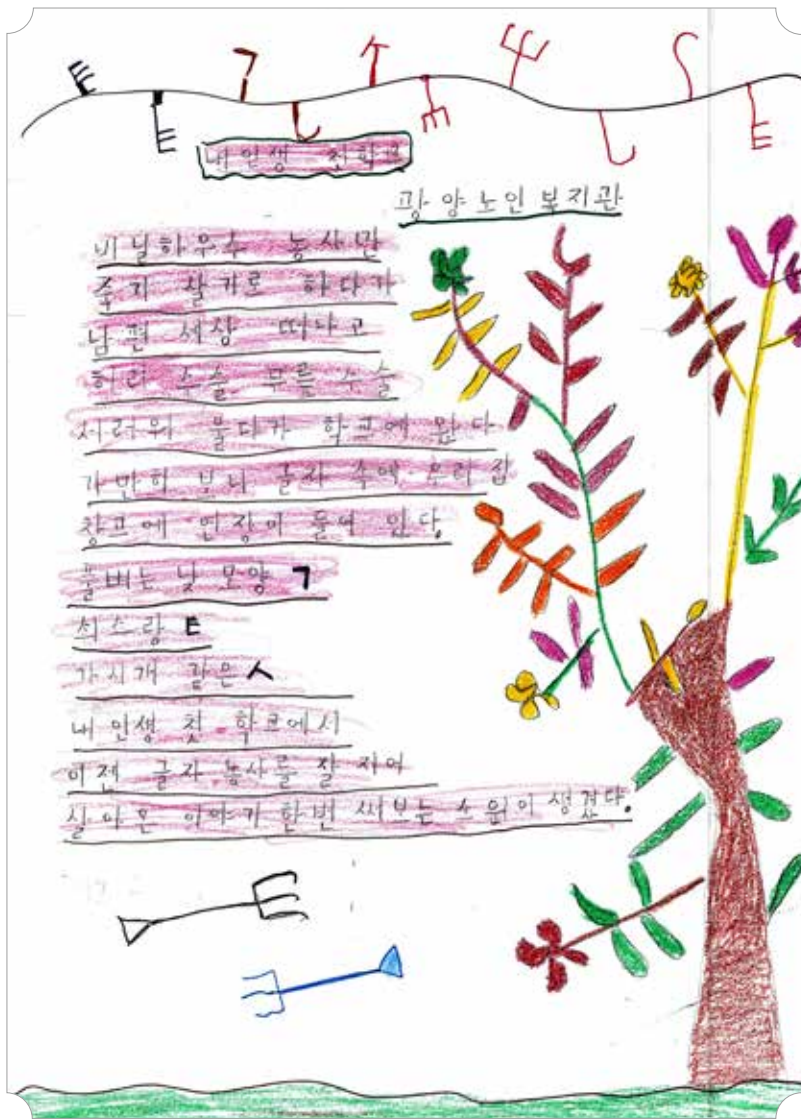 내인생 첫학교
광양노인복지관
비닐하우수 농사만
죽기 살기로 하다가
남편 세상 떠나고
허리 수술 무릎 수술
서러워 울다가 학교에 왔다
가만히 보니 글자 속에 우리 집
창고에 연장이 들어 있다.
풀베는 낫 모양 ㄱ
쇠스랑 ㅌ
가시개 같은 ㅅ
내 인생 첫 학교에서
이젠 글자 농사를 잘 지어
살아온 이야기 한번 써보는 소원이 생겼다.